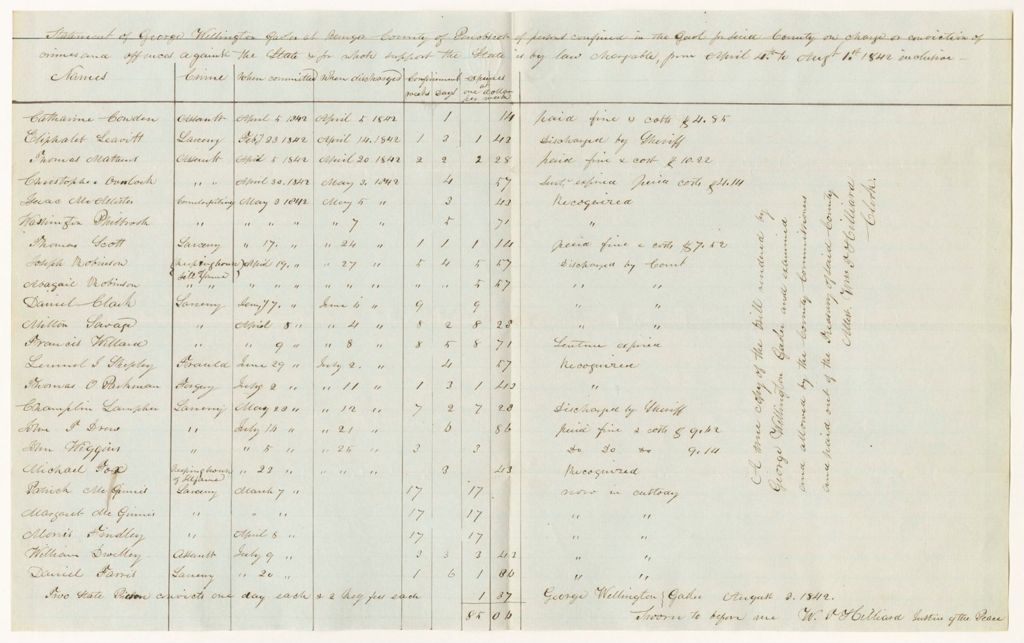 Statement of George Wellington Gaoler at Bangor County of Penobscot of persons confined in the Gaol of said County on charge or conviction of
crimes and offences against the State & for whose support the State is by law chargeable, from April 4th to Augt 1st 1842 inclusive
Names Crime When committed When discharged Confinement weeks days Expenses at one dollar per week
Catharine Cowden Assault April 5 1842 April 5 1842 1 14 paid fine & costs $4.85
Eliphalet Leavitt Larceny Feby 23 1842 April 14. 1842 1 3 1 43 Discharged by Sheriff
Thomas Mathews Assault April 5 1842 April 20 1842 2 2 2 28 paid fine & cost $10.22
Christopher " " April 30. 1842 May 3. 1842 4 57 expired paid costs $4.14
Isaac McAllister May 3 1842 May 5 " 3 43 Recognized
Washington Philbrook " " " " " 7 " 5 71 "
Thomas Scott Larceny " 17. " " 24 " 1 1 1 14 paid fine & costs $7.52
Joseph Robinson keeping house of ill fame April 19. " " 27 " 5 4 5 57 Discharged by Court
Abagail Robinson " " " " " " " " " " 5 57 " "
Daniel Clark Larceny 7. " June 4 " 9 9 " "
Milton Savage " April 8 " " 4 " 8 2 8 28 " "
Francis Willard " " 9 " " 8 " 8 5 8 71 Sentence expired
Lemuel J Shepley Frauld June 29 " July 2. " 4 57 Recognized
Thomas O Parkman Forgery July 2 " " 11 " 1 3 1 43 "
Champlin Lampher Larceny May 23 " " 12 " 7 2 7 28 Discharged by Sheriff
John P Drew " July 14 " " 21 " 6 86 paid fine & costs $9.42
John Wiggins " " 5 " " 25 " 3 3 do do do 9.14
Michael Fox keeping house of ill fame " 23 " " " " 3 43 Recognized
Patrick McGinnis Larceny March 7 " 17 17 now in custody
Margaret McGinnis " " " " 17 17 " "
Morris Findley " April 8 " 17 17 " "
William Assault July 9 " 3 3 3 43 " "
Daniel Farris Larceny " 20 " 1 6 1 86 " "
Two State Prison convicts one day each & 2 keg fees each 1 37
85 04
George Wellington Gaoler August 3. 1842.
Sworn to before me W. T Hilliard Justice of the Peace
A true copy of the bill rendered by
George Wellington Gaoler and examined
and allowed by the County Commissioners
and paid out of the Treasury of said County
Attest Wm T Hilliard
Clerk.